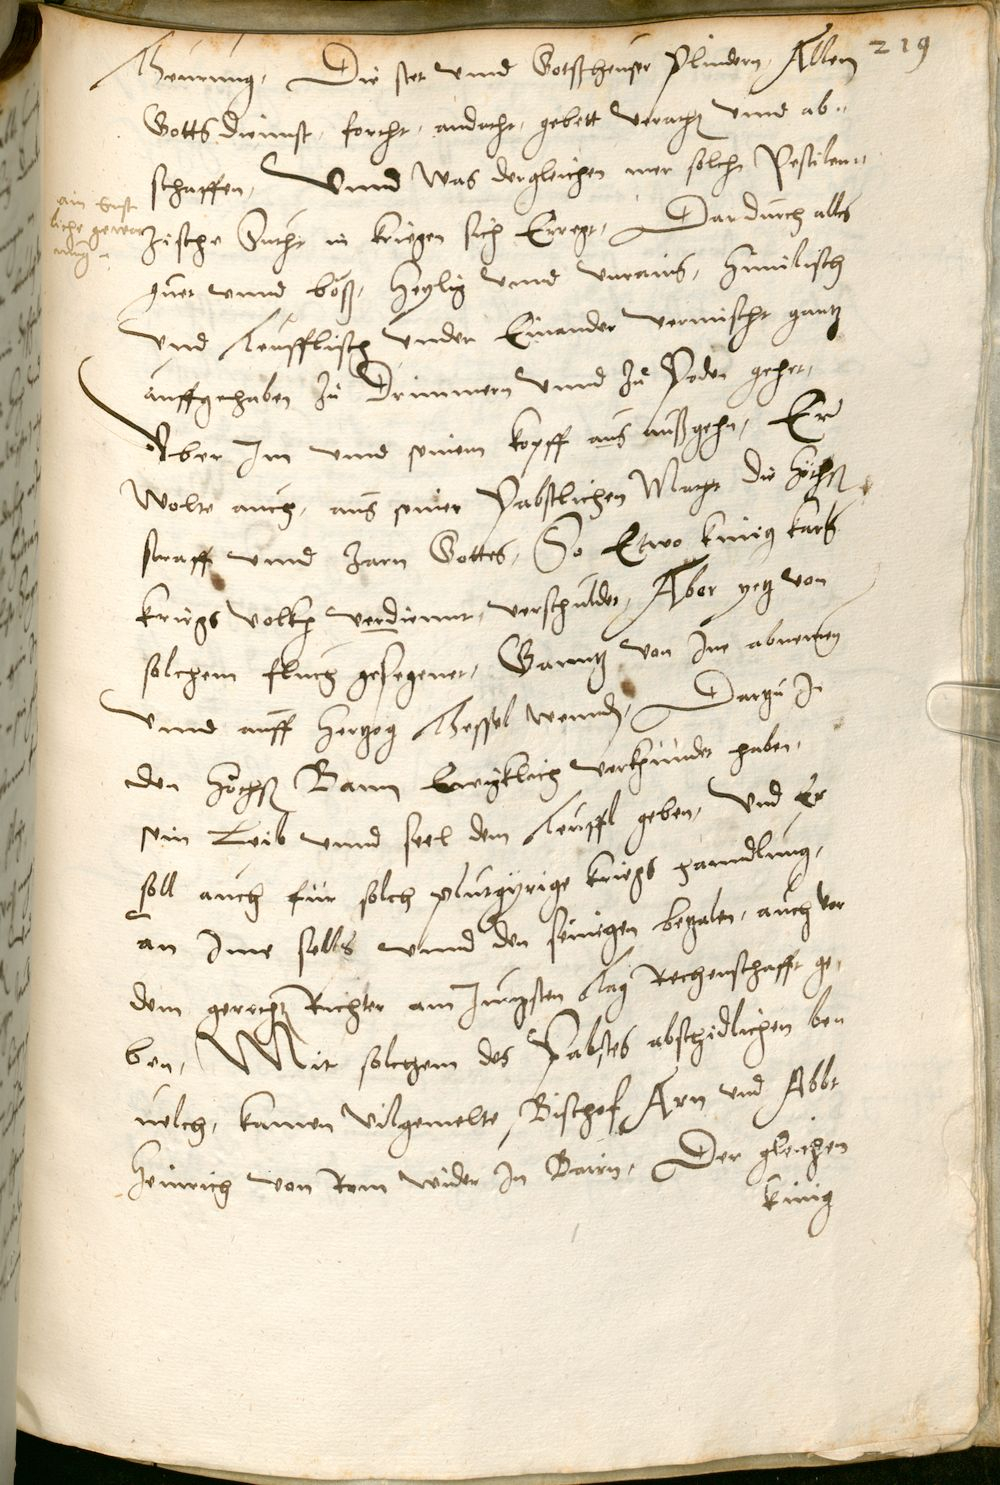 219
Theurung, Die stet vnnd Gotßheuser Plindern, Allen
Gotts dinnst, forcht, andacht, gebett veracht vnnd ab-
schaffen, Vnnd was dergleichen mer solche Pestilen-
ain Ernst
liche gewar
nung
zische Sucht in kriegen sich Erregt, Dardurch alles
guet vnnd böß, Heylig vnnd vnrains, Himilisch
vnd Teufflisch vnder Einander vermischt gantz
auffgehaben zu Drimmern vnnd zu Poden gehet,
Vber Im vnnd seinem kopff aus außgehn, Er
wolte auch, aus seiner Pabstlichen Macht die höchst
straff vnnd zarn Gottes, So Etwo kunig karls
kriegs volkh verdiennt, verschuldet, Aber yetz von
solchem fluch gesegenet, Ganntz von Ine abnemen
vnnd auff Hertzog Thessel wenndn, Dartzu In
den höchst Bann Ewigklich verkhündet haben,
sein Leib vnnd seel dem Teuffl geben, Vnd Er
soll auch für solch plutgyrige kriegs hanndlung,
an Ime selbs vnnd den seinigen bezalen, auch vor
dem gerechtn Richter am Jungsten Tag Rechenschafft ge-
ben, Mit solchem des Pabstes abschidlichen beu
uelch, kamen vilgemelte Bischof Arn vnd Abbt
Heinrich von Rom wider In Bairn, Der gleichen
kunig